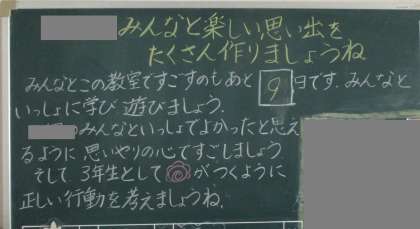 みんなと楽しい思い出を
たくさん作りましょうね
みんなとこの教室ですごすのもあと9日です。みんなと
いっしょに学び 遊びましょう。
のみんなといっしょでよかったと思え
るように 思いやりの心ですごしましょう
そして 3年生として がつくように
正しい行動を考えましょうね。